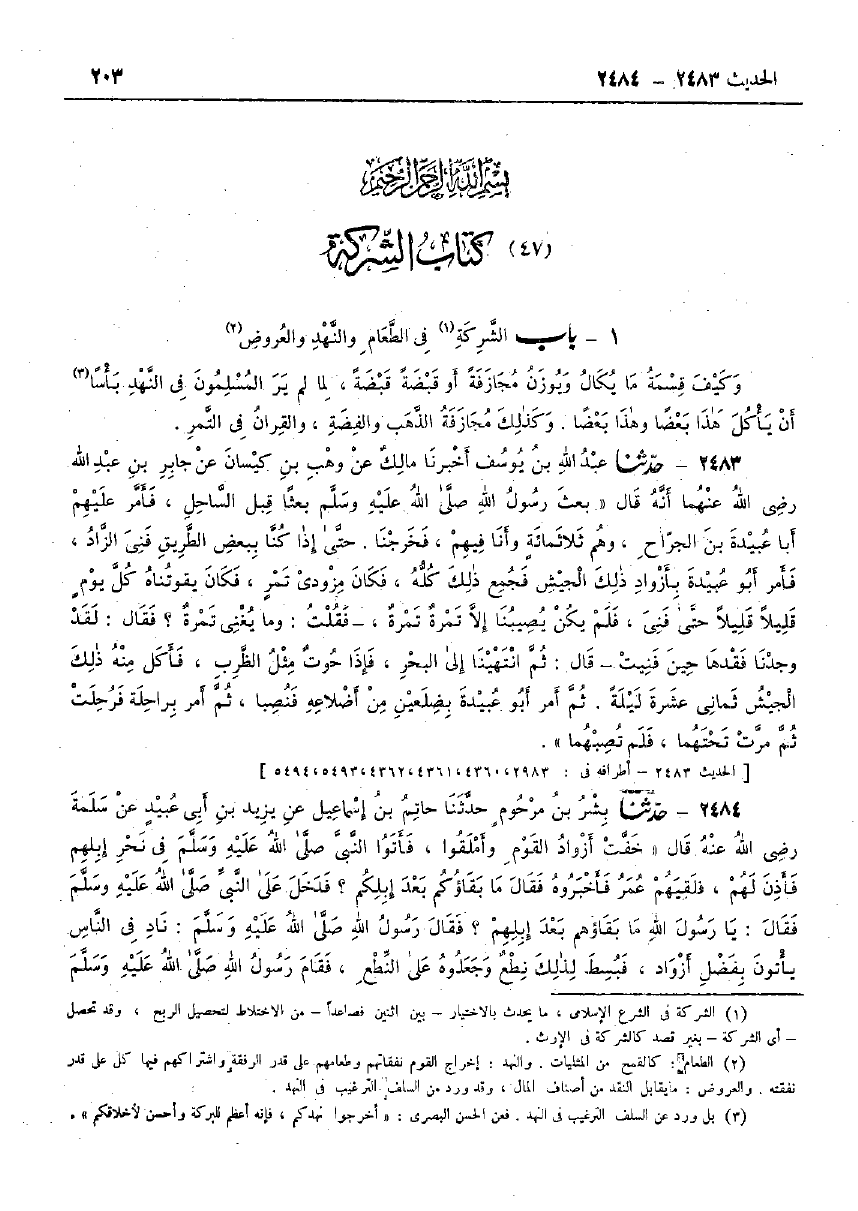 الحديث ٢٤٨٣ – ٢٤٨٤ ٢٠٣
بسم الله الرحمن الرحيم
(٤٧) كتاب الشركة
١ – باب الشَّرِكَةِ(١) فى الطَّعَامِ والنَّهْدِ والعُروضِ(٢)
وَكَيْفَ قِسْمَةُ مَا يُكَالُ وَيُوزَنُ مُجَازَفَةً أو قَبْضَةً قَبْضَةً ، لما لم يَرَ المُسْلِمُونَ فى النَّهْدِ بَأْسًا(٣)
أَنْ يَأْكُلَ هٰذَا بَعْضًا وهٰذَا بَعْضًا . وَكَذٰلِكَ مُجَازَفَةُ الذَّهَبِ والفِضَةِ ، والقِرانُ فى التَّمرِ .
٢٤٨٣ – حدّثنا عبدُ اللهِ بنُ يُوسُف أخبرنَا مالِكٌ عَنْ وهْبِ بنِ كيْسانَ عَنْ جابِرِ بنِ عبْدِ الله
رضِى اللهُ عنْهُما أَنَّهُ قال « بعثَ رسُولُ اللهِ صلَّى اللهُ علَيْهِ وسَلَّم بعثًا قِبل السَّاحلِ ، فأَمَّر علَيْهِمْ
أبا عُبيْدةَ بنَ الجرَّاحِ ، وهُم ثَلاثمائَةٍ وأنَا فِيهِمْ ، فَخَرجْنَا . حتَّىٰ إذَا كُنَّا بِبعضِ الطَّرِيقِ فَنِىَ الزَّادُ ،
فَأَمر أبُو عُبيْدَةَ بِأَزْوادِ ذٰلِكَ الْجَيْشِ فَجُمِع ذٰلِكَ كُلُّهُ ، فَكَانَ مِزْودىْ تَمْرٍ ، فَكَانَ يقوتُناهُ كُلَّ يوْمٍ
قلِيلاً قلِيلاً حتَّىٰ فَنِىَ ، فَلَمْ يكُنْ يُصِيبُنَا إلاَّ تَمْرةٌ تَمْرةٌ ، – فَقُلْتُ : وما يُغْنِى تَمْرةٌ ؟ فَقال : لَقَدْ
وجدْنَا فَقْدَها حِينَ فَنِيتْ – قَال : ثُمَّ انْتَهيْنَا إلىٰ البحْرِ ، فَإذَا حُوتٌ مِثْلُ الظَّرِبِ ، فَأَكَل مِنْهُ ذٰلِكَ
الْجيْشُ ثَمانِى عشَرةَ لَيْلَةً . ثُمَّ أمر أبُو عُبيْدةَ بِضِلَعيْنِ مِنْ أَضْلاعِهِ فَنُصِبا ، ثُمَّ أمر بِراحِلَة فَرُحِلَتْ
ثُمَّ مرَّتْ تَحْتَهُما ، فَلَم تُصِبْهُما » .
[ الحديث ٢٤٨٣ – أطرافه فى : ٢٩٨٣، ٤٣٦٠، ٤٣٦١، ٤٣٦٢، ٥٤٩٣، ٥٤٩٤ ]
٢٤٨٤ – حدّثنا بِشْرُ بنُ مرْحُومٍ حدَّثَنَا حاتِمُ بنُ إسْماعِيل عنِ يزِيد بنِ أبى عُبيْدٍ عَنْ سَلَمةَ
رضِى اللهُ عنْهُ قَال « خَفَّتْ أَزْوادُ القَوْمِ وأمْلَقُوا ، فَأَتَوُا النَّبِىَّ صلَّىٰ اللهُ علَيْهِ وَسَلَّمَ فِى نَحْرِ إبِلِهِم
فَأذِنَ لَهُمْ ، فَلَقِيَهُمْ عُمَرُ فَأَخْبَرُوهُ فَقَالَ مَا بَقَاؤُكُم بَعْدَ إبِلِكُم ؟ فَدَخَلَ عَلَىٰ النَّبِىِّ صَلَّىٰ اللهُ عَلَيْهِ وسَلَّم
فَقَالَ : يَا رَسُولَ اللهِ مَا بَقَاؤهم بَعْدَ إبِلِهِمْ ؟ فَقَالَ رَسُولُ اللهِ صَلَّىٰ اللهُ عَلَيْهِ وَسَلَّمَ : نَادِ فِى النَّاسِ
يأتُونَ بِفَضْلِ أَزْوَاد ، فَبُسِطَ لِذٰلِكَ نِطْعٌ وَجَعَلُوهُ عَلَىٰ النِّطْعِ ، فَقَامَ رَسُولُ اللهِ صَلَّىٰ اللهُ عَلَيْهِ وَسَلَّمَ
(١) الشركة فى الشرع الإسلامى ، ما يحدث بالاختيار – بين اثنين فصاعداً – من الاختلاط لتحصيل الربح ، وقد تحصل
– أى الشركة – بغير قصد كالشركة فى الإرث .
(٢) الطعام : كالقمح من المثليات . والنهد : إخراج القوم نفقاتهم وطعامهم على قدر الرفقة واشتراكهم فيها كل على قدر
نفقته . والعروض : مايقابل النقد من أصناف المال ، وقد ورد من السلف الترغيب فى النهد .
(٣) بل ورد عن السلف الترغيب فى النهد . فعن الحسن البصرى : « أخرجوا نهدكم ، فإنه أعظم للبركة وأحسن لأخلاقكم » .